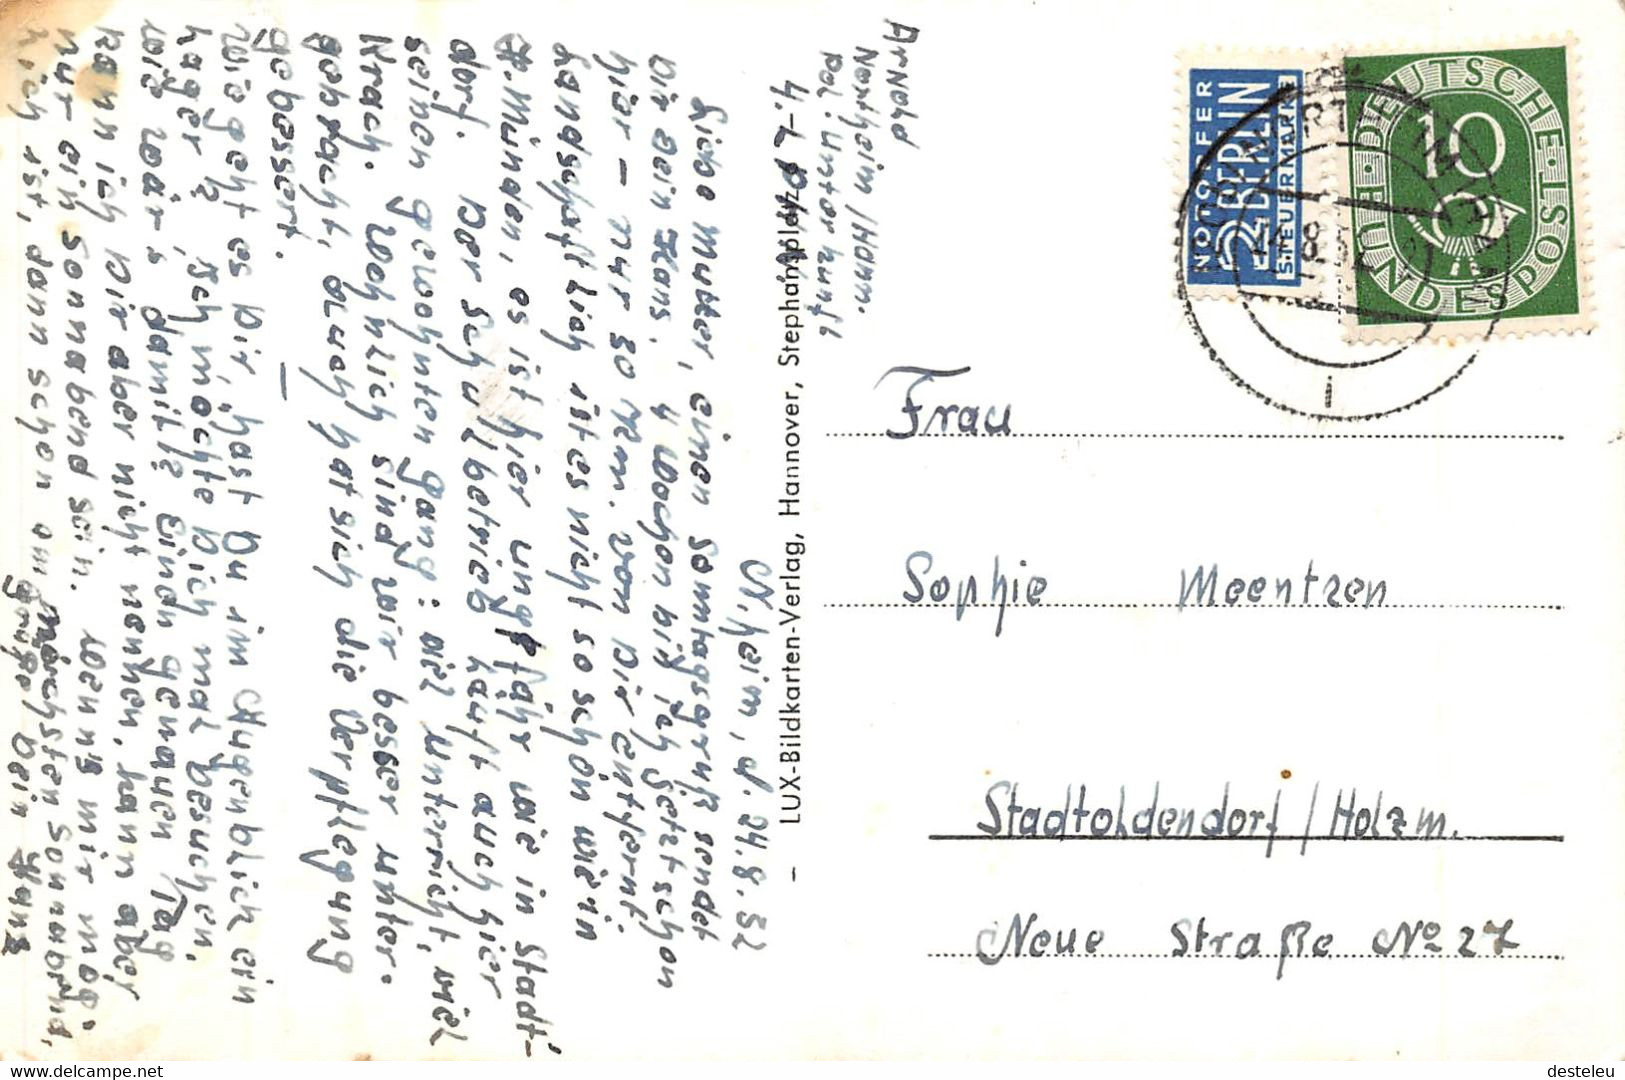 Arnold
Northeim/Hann.
Pol. Unterkunft
N.heim, d. 24.8.52
Liebe Mutter, einen Sonntagsgruß sendet
Dir Dein Hans. 4 Wochen bin ich jetzt schon
hier – nur 30 km. von Dir entfernt.
Landschaftlich ist es nicht so schön wie in
H. Münden, es ist hier ungefähr wie in Stadt-
dorf. Der Schulbetrieb läuft auch hier
seinen gewohnten Gang: viel Unterricht, viel
Krach. Wohnlich sind wir besser unter-
gebracht, auch hat sich die Verpflegung
gebessert. –
Wie geht es Dir, hast Du im Augenblick ein
Lager? Ich möchte Dich mal besuchen,
wie wär's damit? Eindn genauen Tag
kann ich Dir aber nicht nennen, kann aber
nur ein Sonnabend sein. Wenn's mir mög-
lich ist, dann schon am nächsten Sonnabend,
Dein Hans
LUX-Bildkarten-Verlag, Hannover, Stephansplatz
NOTOPFER
2 BERLIN
STEUERMARKE
DEUTSCHE BUNDESPOST
10
Frau
Sophie Meentzen
Stadtoldendorf/Holzm.
Neue Straße No 27
desteleu